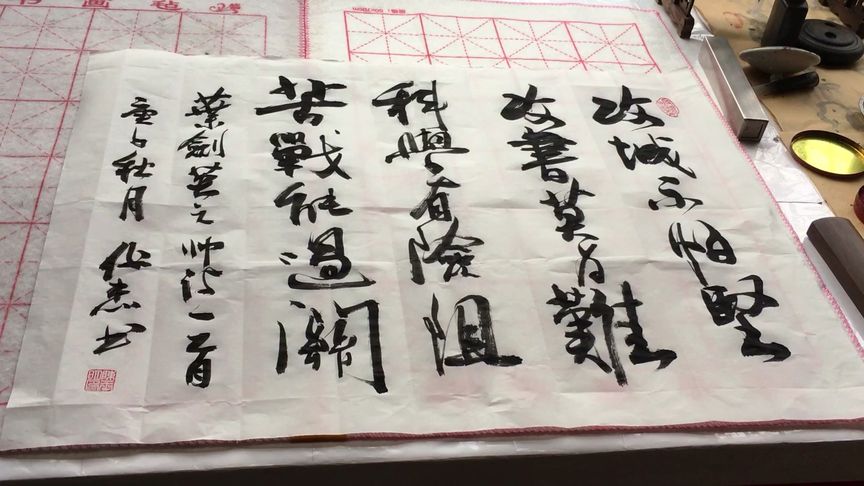 攻城不怕堅
攻書莫畏難
科學有險阻
苦戰能過關
葉劍英元帅诗一首
庚子秋月 志书
画毡
50x70cm